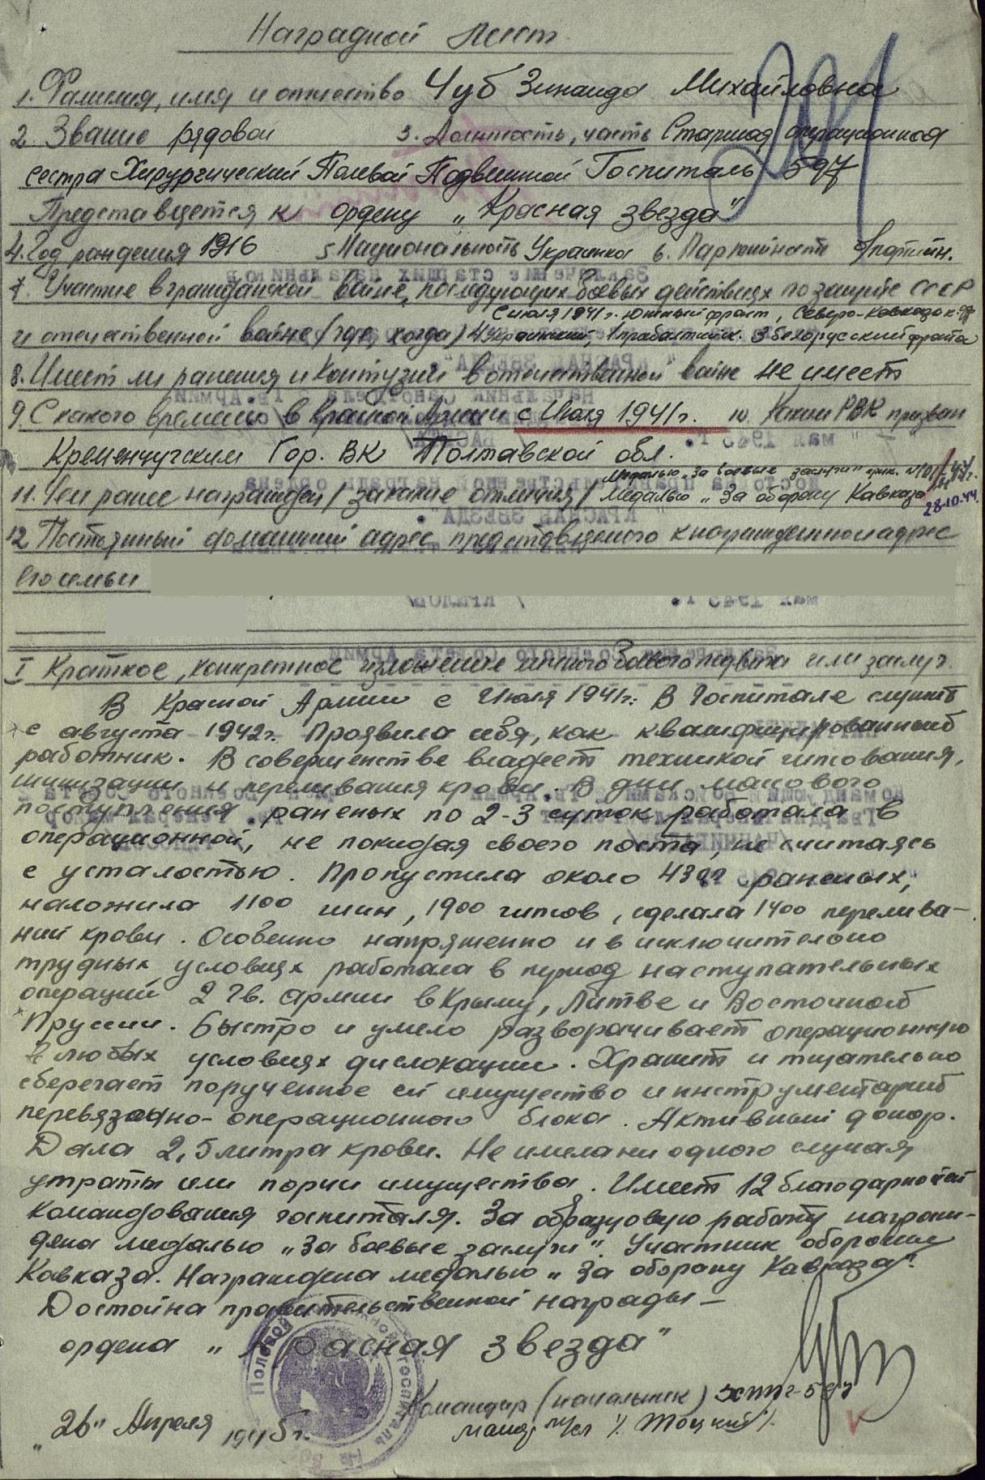 Наградной лист
1. Фамилия, имя и отчество Чуб Зинаида Михайловна
2. Звание рядовой 3. Должность, часть Старшая операционная
сестра Хирургический Полевой Подвижной Госпиталь 597
Представляется к ордену „Красная звезда"
4. Год рождения 1916 5. Национальность Украинка 6. Партийность б/партийн.
7. Участие в гражданской войне, последующих боевых действиях по защите СССР
С июля 1941 г. Южный фронт, Северо-Кавказск.
и отечественной войне (где, когда) 4 Украинский, 1 прибалтийск. 3 белорусский фронта
8. Имеет ли ранения и контузии в отечественной войне не имеет
9. С какого времени в красной Армии с Июля 1941 г. 10. Каким РВК призван
Кременчугским Гор. ВК Полтавской обл.
Медалью „За боевые заслуги" прик.
11. Чем ранее награжден /за какие отличия/ Медалью „За оборону Кавказа"
28.10.44.
12 Постоянный домашний адрес представляемого к награждению и адрес
его семьи
I Краткое, конкретное изложение личного боевого подвига или заслуг.
В Красной Армии с Июля 1941 г. В Госпитале служит
с августа 1942 г. Проявила себя, как квалифицированный
работник. В совершенстве владеет техникой гипсования,
шинизации и переливания крови. В дни массового
поступления раненых по 2-3 суток работала в
операционной, не покидая своего поста, не считаясь
с усталостью. Пропустила около раненых,
наложила 1100 шин, 1900 гипсов, сделала 1400 перелива-
ний крови. Особенно напряженно и в исключительно
трудных условиях работала в период наступательных
операций 2 Гв. армии в Крыму, Литве и Восточной
Пруссии. Быстро и умело разворачивает операционную
в любых условиях дислокации. Хранит и тщательно
сберегает порученное ей имущество и инструментарий
перевязочно-операционного блока. Активный донор.
Дала 2,5 литра крови. Не имела ни одного случая
утраты или порчи имущества. Имеет 12 благодарностей
командования госпиталя. За образцовую работу награж-
дена медалью „За боевые заслуги". Участник обороны
Кавказа. Награждена медалью „За оборону Кавказа".
Достойна правительственной награды —
ордена „Красная звезда"
Командир (начальник) ХППГ-597
майор м/сл /Тоцкий/
„26" Апреля 1945 г.